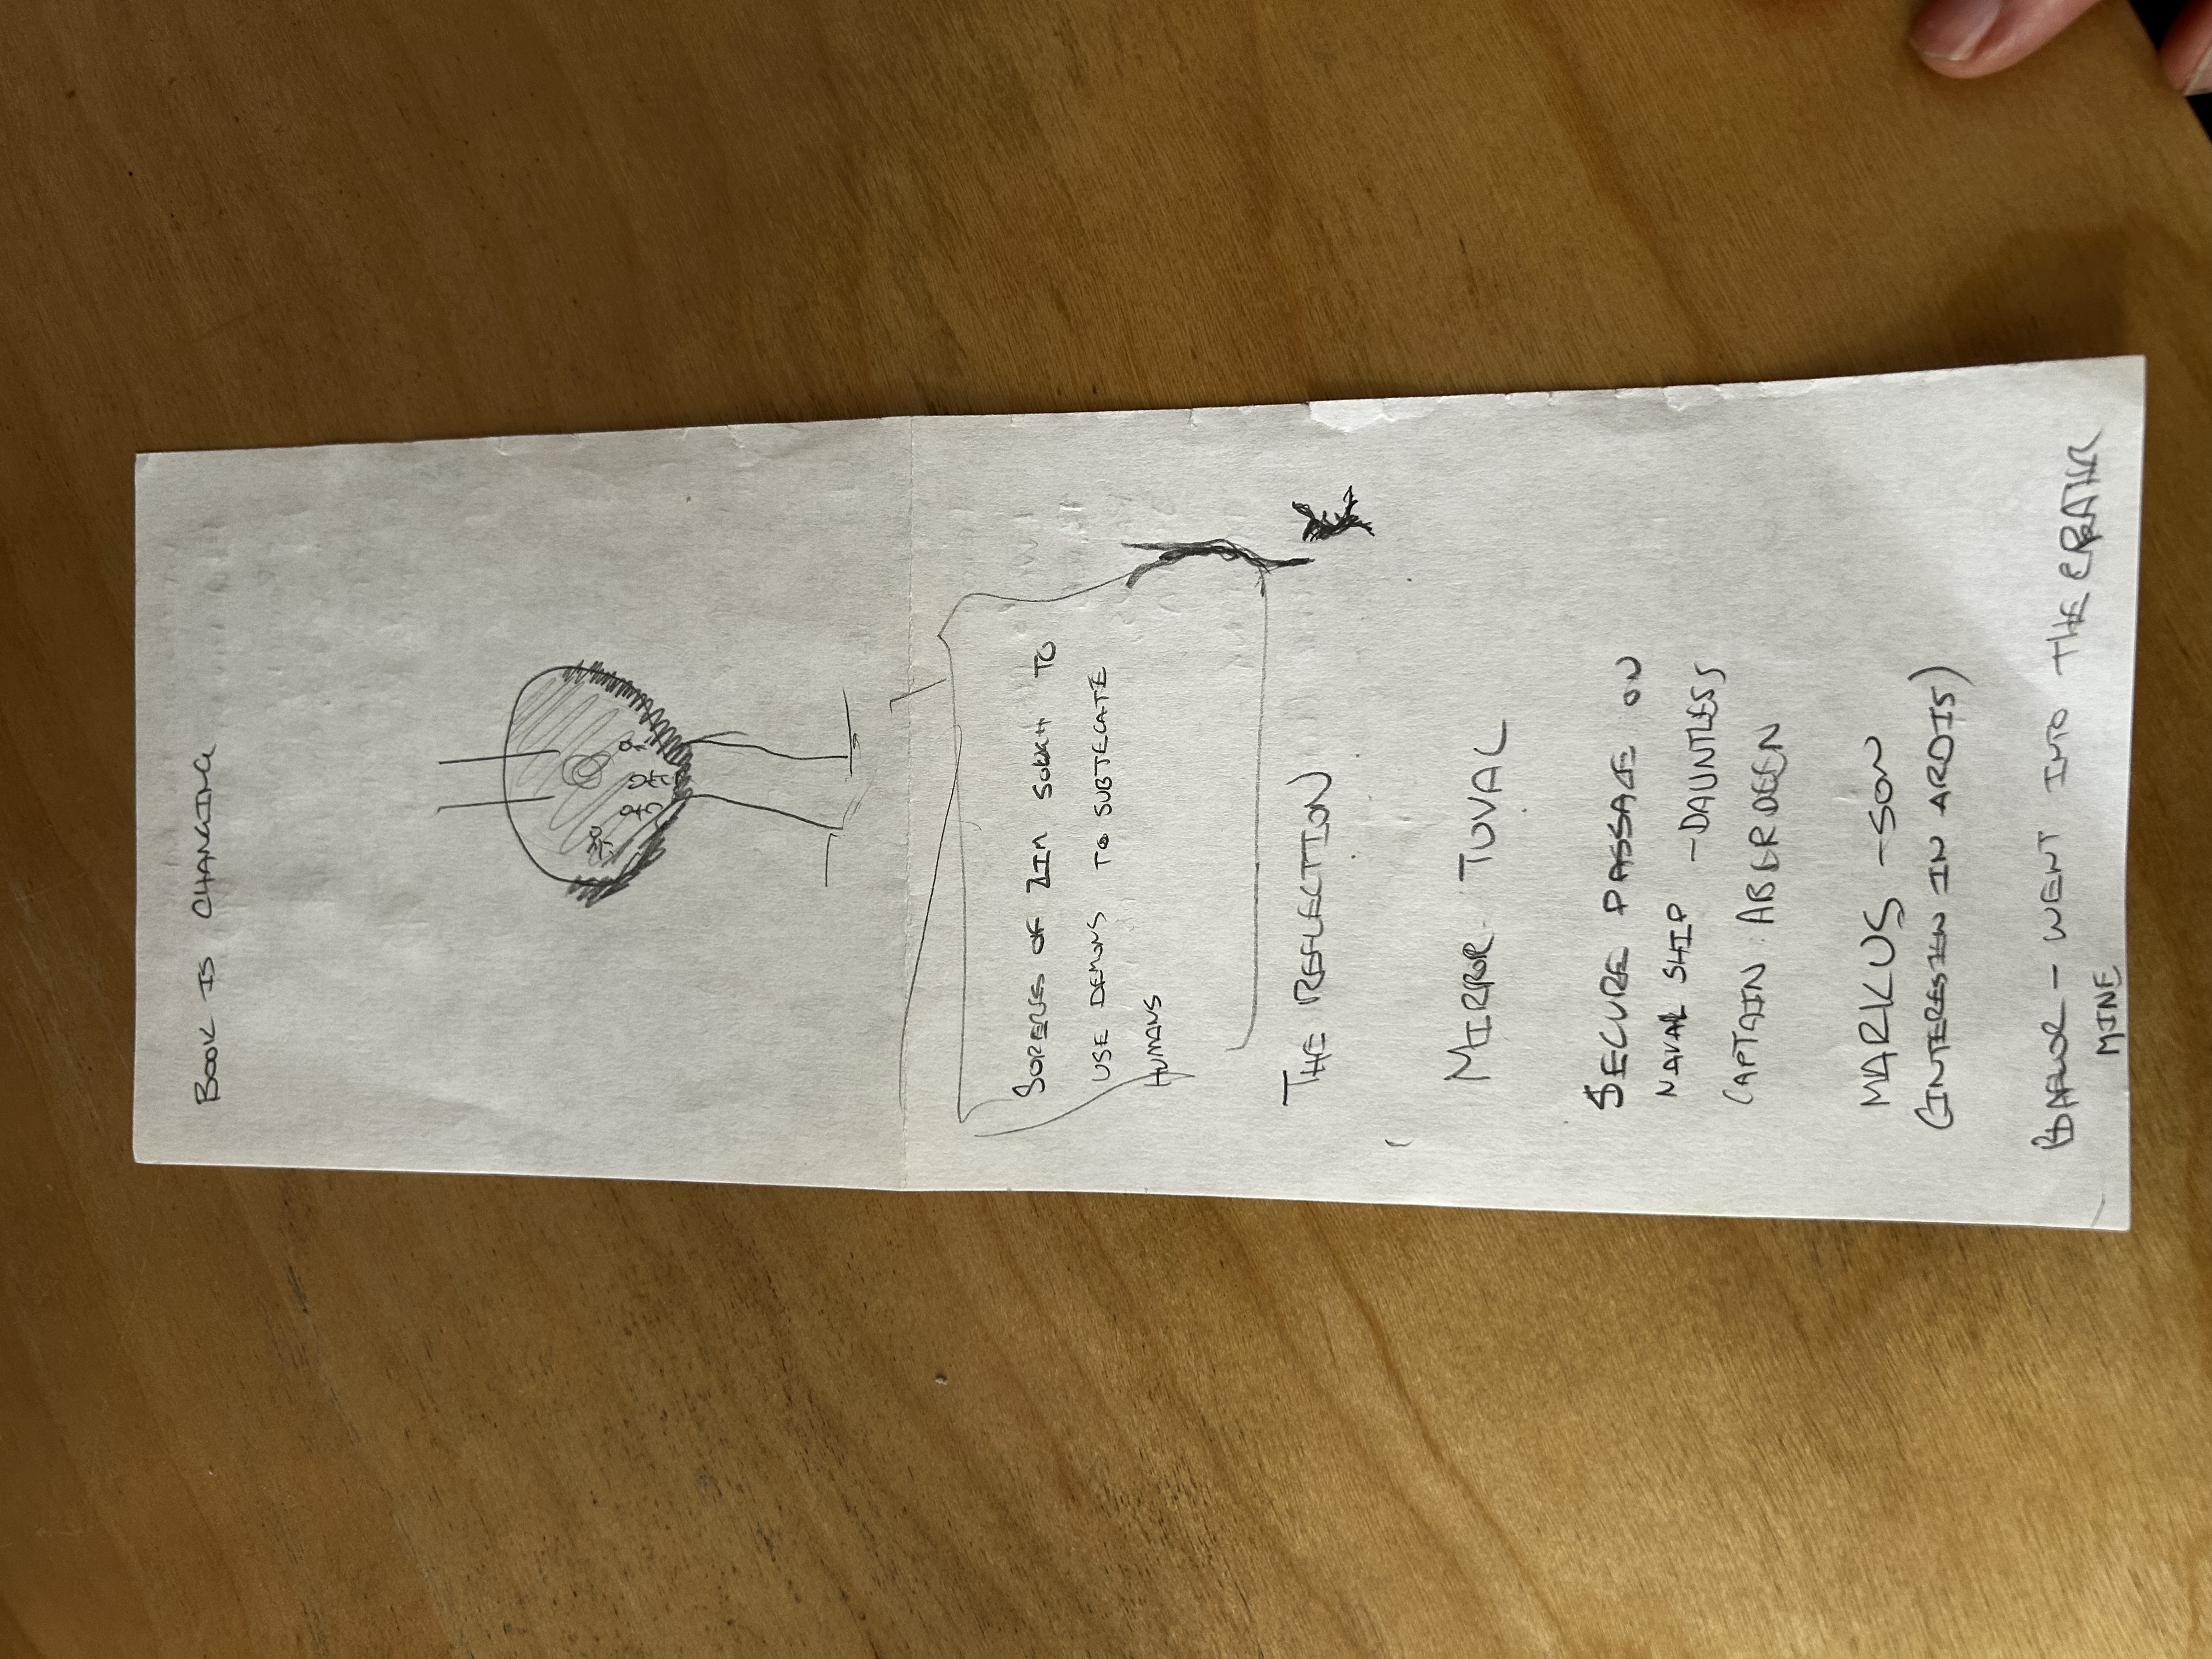 BOOK IS CHANGING
OF ZIM TO
USE DEMONS TO SUBTEGATE
HUMANS
THE REFLECTION
MIRROR TUVAL
SECURE PASSAGE ON
NAVAL SHIP - DAUNTLESS
CAPTAIN ABERDEEN
MARKUS - SON
(INTERESTED IN ARDIS)
- WENT INTO THE
MINE